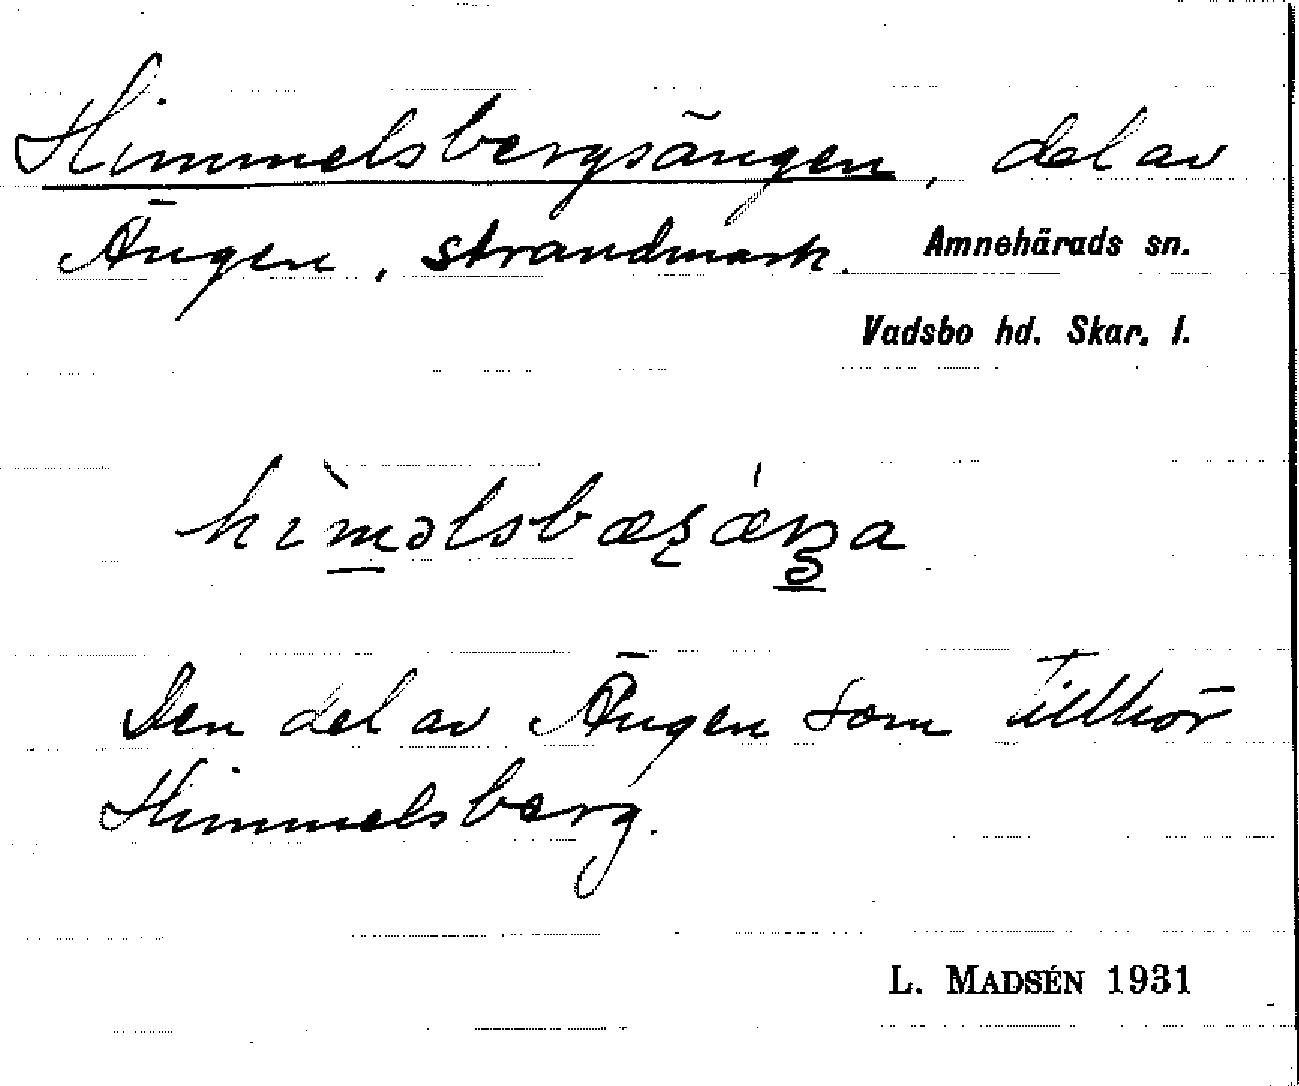 Himmelsbergsängen, del av
Ängen, strandmark.
Amnehärads sn.
Vadsbo hd. Skar. l.
Den del av Ängen som tillhör
Himmelsberg.
L. MADSÉN 1931